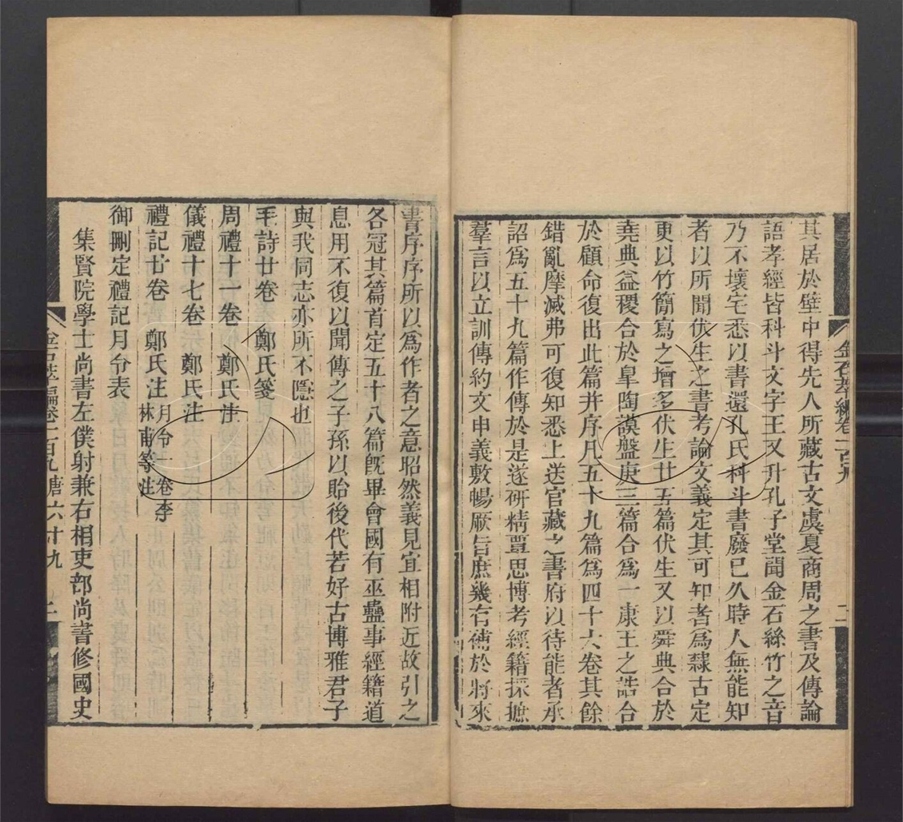 其居於壁中得先人所藏古文虞夏商周之書及傳論
語孝經皆科斗文字王又升孔子堂聞金石絲竹之音
乃不壞宅悉以書還孔氏科斗書廢已久時人無能知
者以所聞伏生之書考論文義定其可知者爲隸古定
更以竹簡寫之增多伏生廿五篇伏生又以舜典合於
堯典益稷合於皐陶謨盤庚三篇合爲一康王之誥合
於顧命復出此篇并序凡五十九篇爲四十六卷其餘
錯亂摩滅弗可復知悉上送官藏之書府以待能者承
詔爲五十九篇作傳於是遂硏精覃思博考經籍採摭
羣言以立訓傳約文申義敷暢厥旨庶幾有補於將來
書序序所以爲作者之意昭然義見宜相附近故引之
各冠其篇首定五十八篇旣畢會國有巫蠱事經籍道
息用不復以聞傳之子孫以貽後代若好古博雅君子
與我同志亦所不隱也
毛詩廿卷 鄭氏箋
周禮十一卷 鄭氏注
儀禮十七卷 鄭氏注
禮記廿卷 鄭氏注 月令一卷李
林甫等注
御刪定禮記月令表
集賢院學士尚書左僕射兼右相吏部尚書修國史
金石萃編卷一百九 唐六十九 二